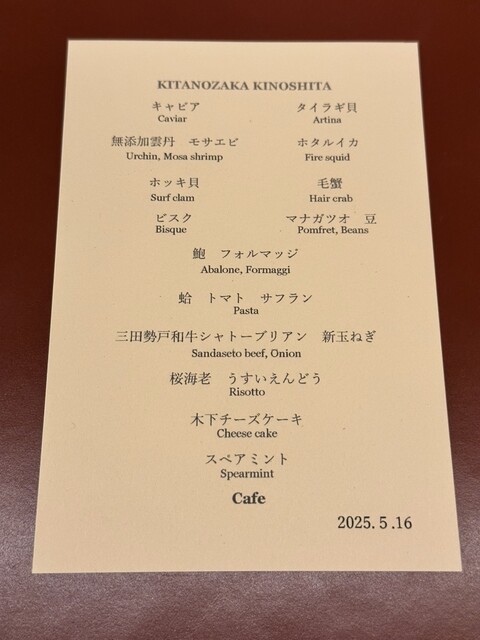 KITANOZAKA KINOSHITA
キャビア　タイラギ貝
Caviar　Artina
無添加雲丹　モサエビ　ホタルイカ
Urchin, Mosa shrimp　Fire squid
ホッキ貝　毛蟹
Surf clam　Hair crab
ビスク　マナガツオ　豆
Bisque　Pomfret, Beans
鮑　フォルマッジ
Abalone, Formaggi
蛤　トマト　サフラン
Pasta
三田勢戸和牛シャトーブリアン　新玉ねぎ
Sandaseto beef, Onion
桜海老　うすいえんどう
Risotto
木下チーズケーキ
Cheese cake
スペアミント
Spearmint
Cafe
2025. 5 .16